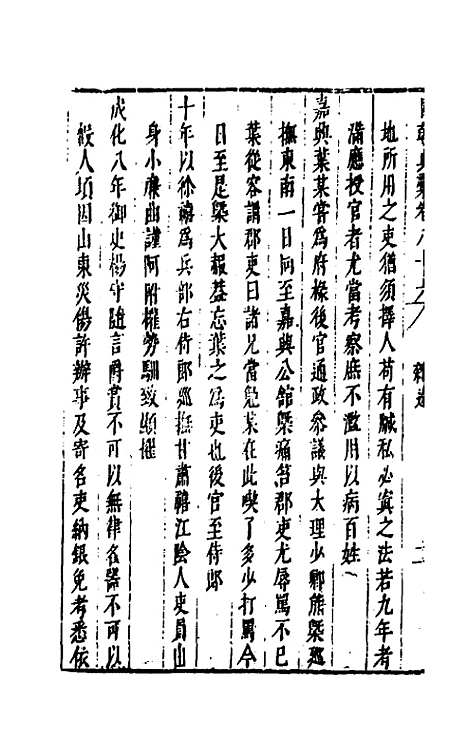 國朝典彙卷八十六
地所用之吏猶須擇人苟有贓私必寘之法若九年考
滿應授官者尤當考察庶不濫用以病百姓
嘉興葉某嘗為府椽後官通政參議與大理少卿熊槩廵
撫東南一日同至嘉興公館槩痛笞郡吏尤辱罵不已
葉從容謂郡吏曰諸兄當勉某在此喫了多少打罵今
日至是槩大報蓋忘葉之為吏也後官至侍郎
十年以徐禧為兵部右侍郎廵撫甘肅禧江陰人吏員出
身小廉曲謹阿附權勢馴致顯擢
成化八年御史楊守隨言爵賞不可以無律名器不可以
假人頃因山東災傷許辦事及寄名吏納銀免考悉依